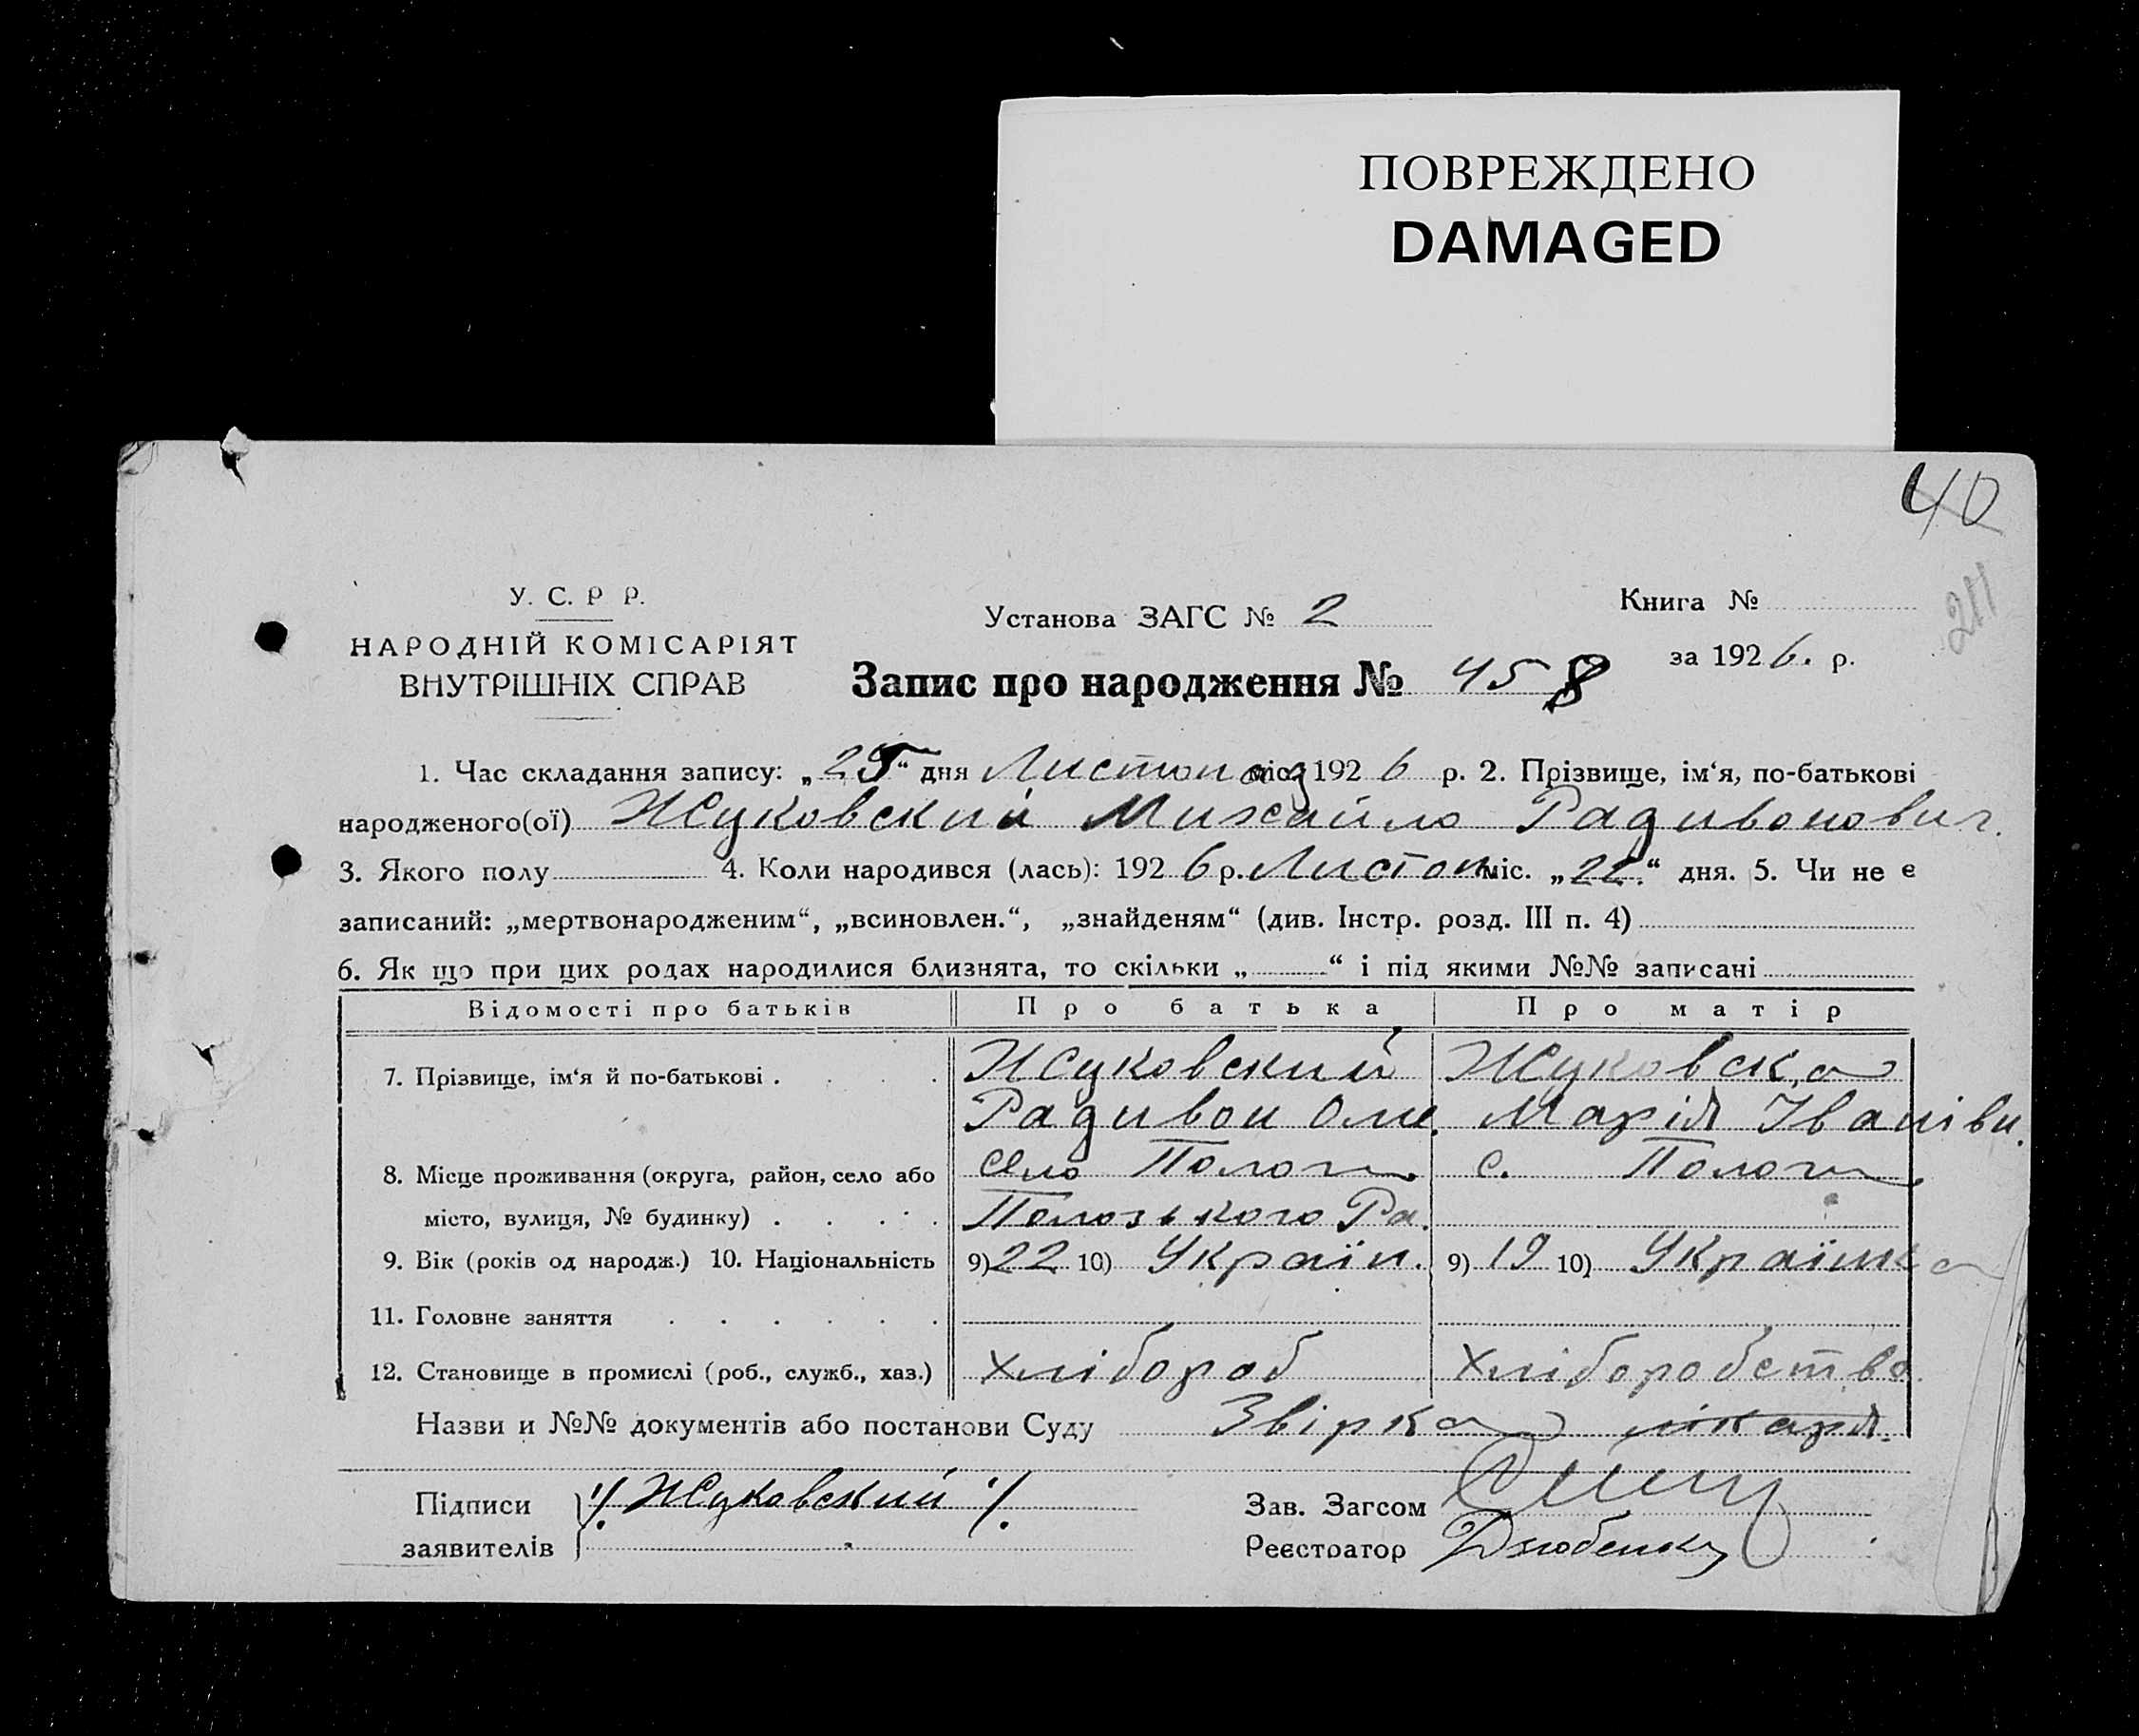 ПОВРЕЖДЕНО
DAMAGED
40
211
У. С. Р Р.
НАРОДНІЙ КОМІСАРІЯТ
ВНУТРІШНІХ СПРАВ
Установа ЗАГС № 2
Книга №
за 1926. р.
Запис про народження № 458
1. Час складання запису: „25“ дня Листопад міс. 1926 р. 2. Прізвище, ім‘я, по-батькові
народженого(ої) Жуковский Михайло Радивонович.
3. Якого полу 4. Коли народився (лась): 1926 р. Листоп міс. „22.“ дня. 5. Чи не є
записаний: „мертвонародженим“, „всиновлен.“, „знайденям“ (див. Інстр. розд. III п. 4)
6. Як що при цих родах народилися близнята, то скільки „ “ і під якими №№ записані
Відомості про батьків Про батька Про матір
7. Прізвище, ім‘я й по-батькові . Жуковский Жуковска
Радивон Оме. Марія Іванівн.
8. Місце проживання (округа, район, село або село Пологи с. Пологи
місто, вулиця, № будинку) . Пологзького Ра.
9. Вік (років од народж.) 10. Національність 9) 22 10) Україн. 9) 19 10) Українка
11. Головне заняття
12. Становище в промислі (роб., служб., хаз.) Хлібороб Хліборобство
Назви и №№ документів або постанови Суду Звірка лікаря.
Підписи /. Жуковский /.
заявителів
Зав. Загсом
Реєстратор Дзюбенко